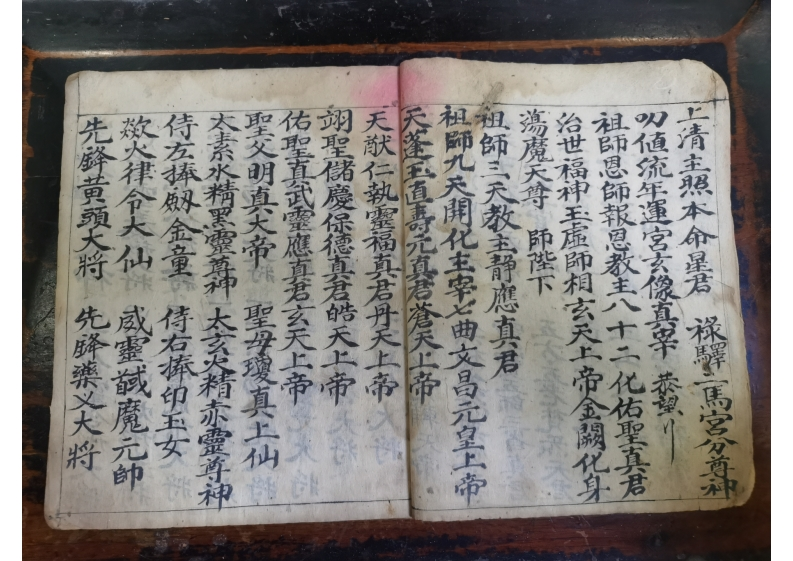 上清主照本命星君　祿驛二馬宮分尊神
叨值流年運宮玄像真宰　恭望
祖師恩師報恩教主八十二化佑聖真君
治世福神玉虛師相玄天上帝金闕化身
蕩魔天尊　師陛下
祖師三天教主靜應真君
祖師九天開化主宰七曲文昌元皇上帝
天蓬玉真壽元真君蒼天上帝
天猷仁執靈福真君丹天上帝
翊聖儲慶保德真君皓天上帝
佑聖真武靈應真君玄天上帝
聖父明真大帝　聖母瓊真上仙
太素水精黑靈尊神　太玄火精赤靈尊神
侍左捧劔金童　侍右捧印玉女
欻火律令大仙　威靈馘魔元帥
先鋒黄頭大將　先鋒藥义大將